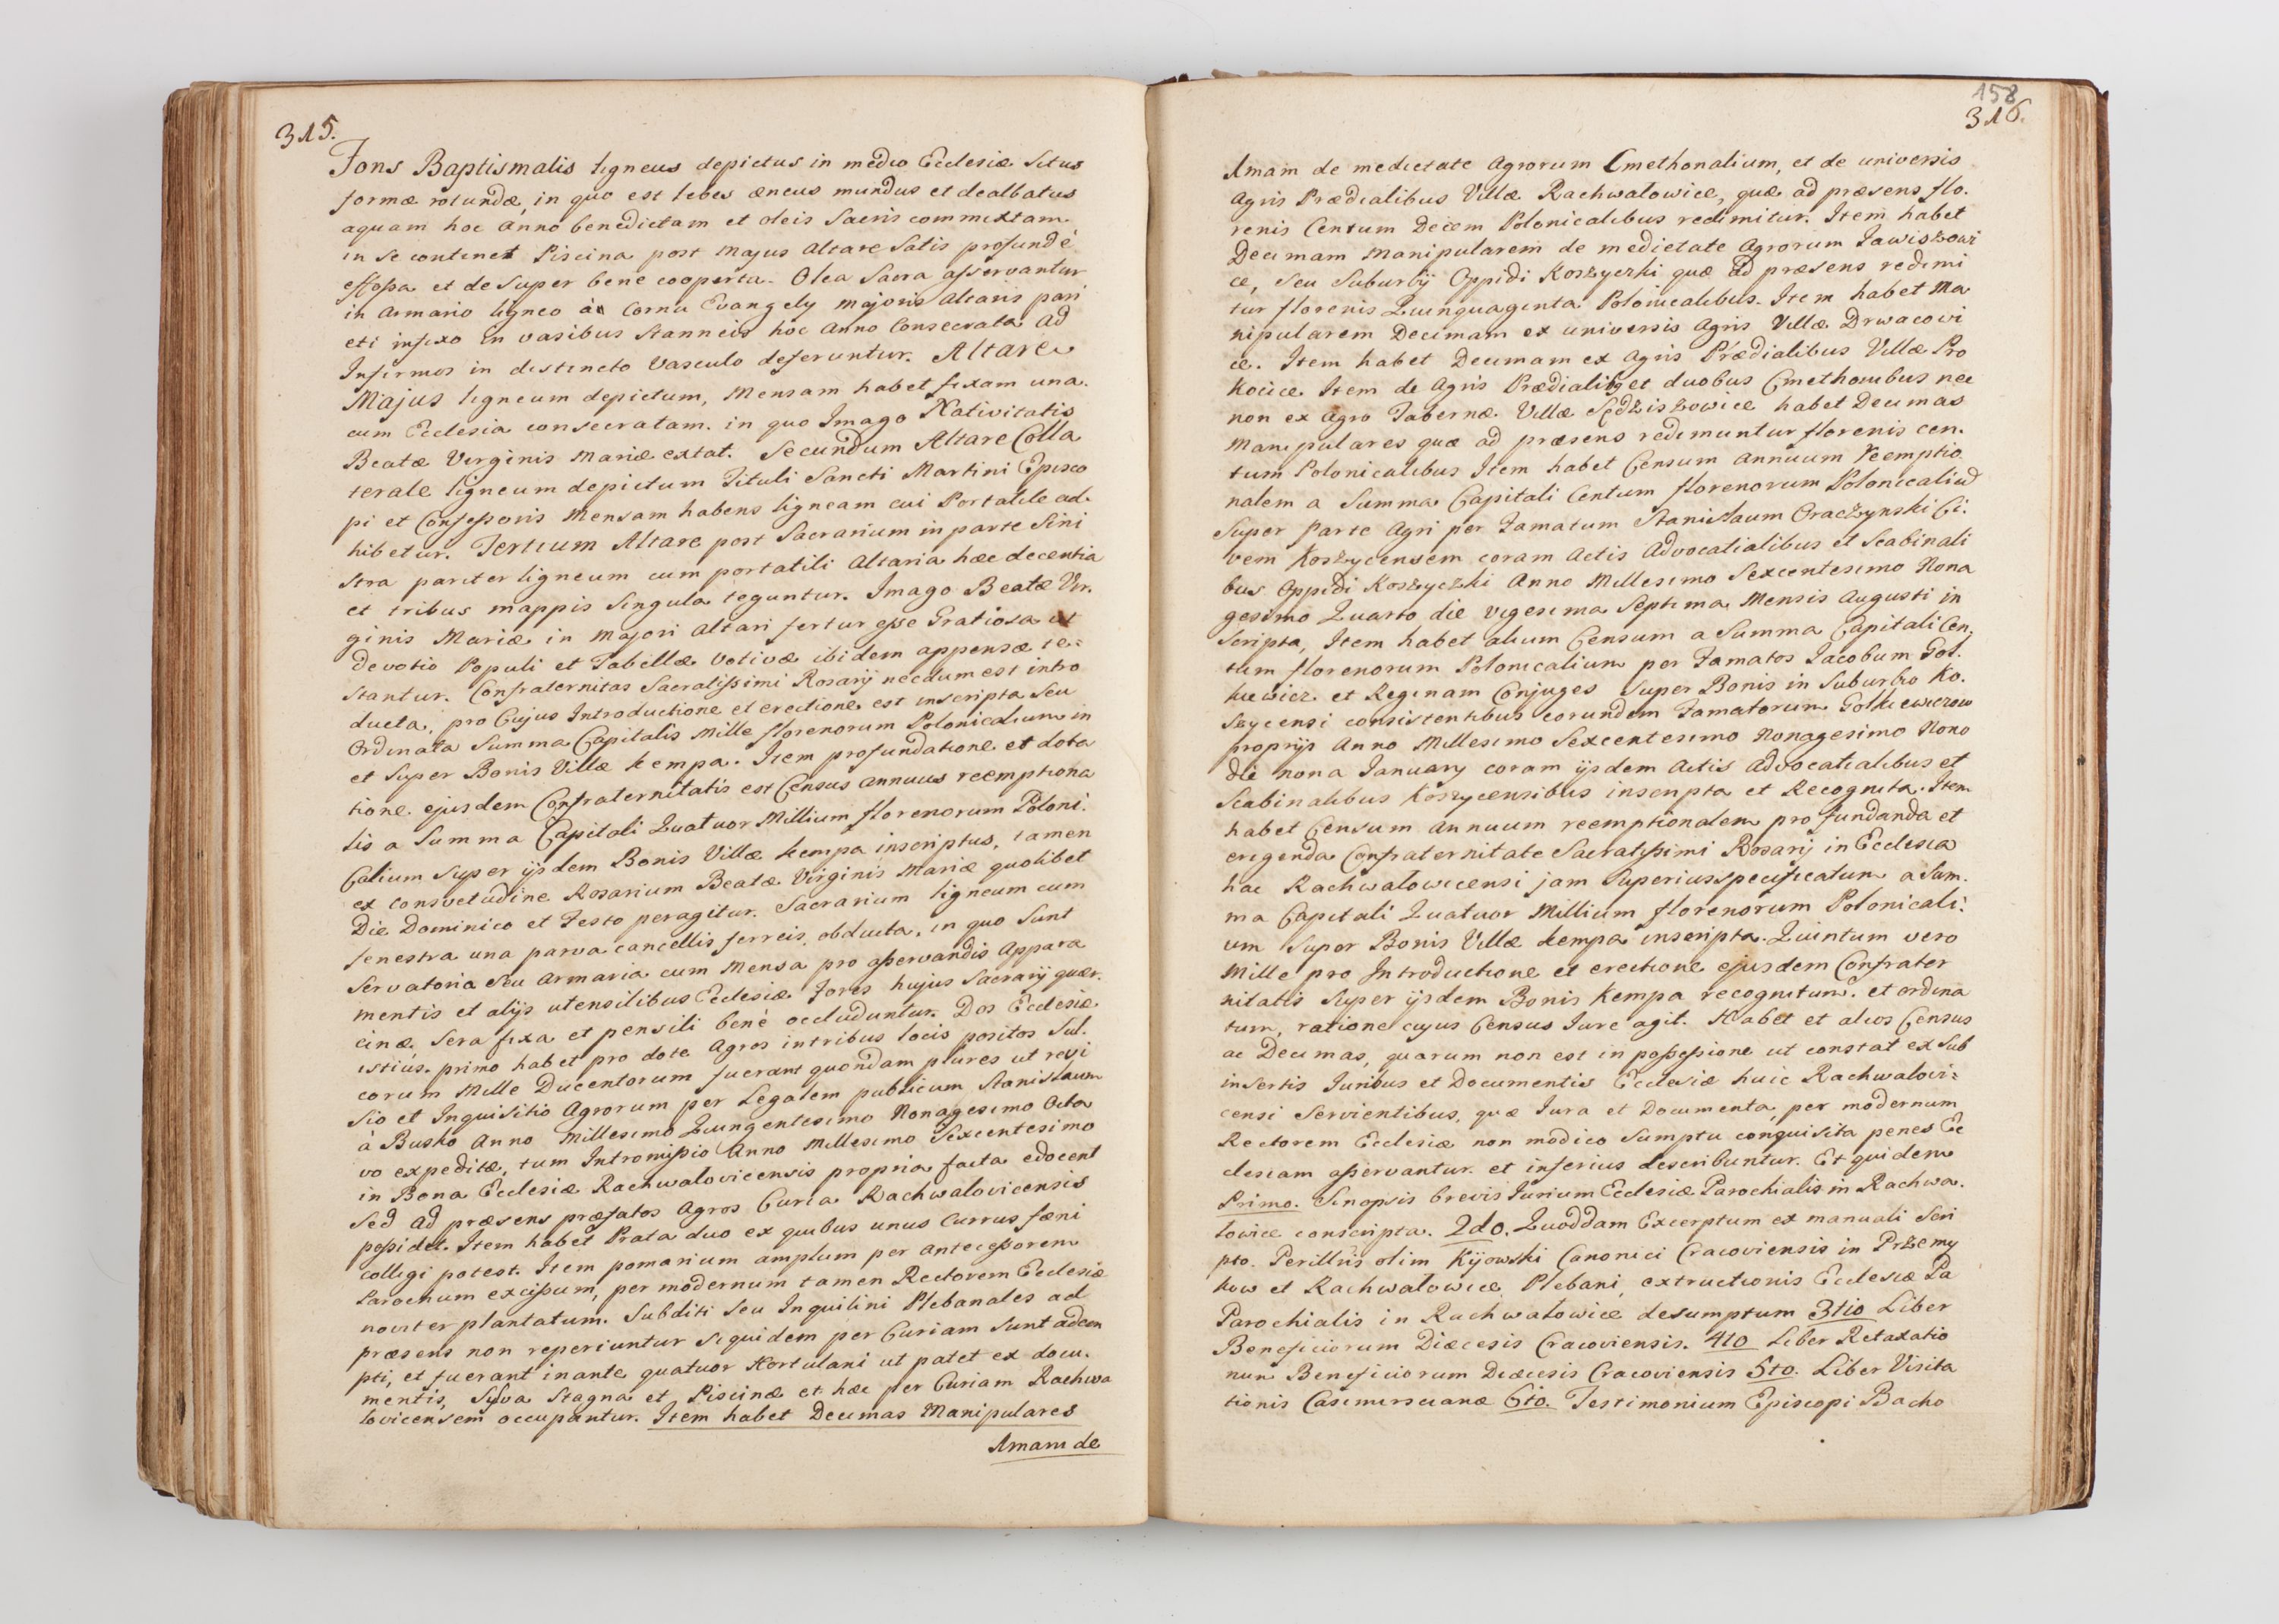 315.
Fons Baptismalis ligneus depictus in medio Ecclesiæ Situs
formæ rotundæ, in quo est lebes æneus mundus et dealbatus
aquam hoc Anno benedictam et oleis Sacris commixtam
in se continet Piscina post Majus Altare Satis profundè
effossa et desuper bene cooperta. Olea Sacra asservantur
in Armario ligneo à Cornu Evangely majoris Altaris pari
eti infixo in vasibus Stanneis hoc Anno Consecrata Ad
Infirmos in distincto Vasculo deferuntur. Altare
Majus ligneum depictum, Mensam habet fixam una
cum Ecclesia consecratam. in quo Imago Nativitatis
Beatæ Virginis Mariæ extat. Secundum Altare Colla
terale ligneum depictum Tituli Sancti Martini Episco
pi et Confessoris Mensam habens ligneam cui Portatile ad
hibetur. Tertium Altare post Sacrarium in parte Sini
stra pariter ligneum cum portatili Altaria hæc decentia
et tribus mappis Singula teguntur. Imago Beatæ Vir.
ginis Mariæ in Majori Altari fertur esse Gratiosa ut
devotio Populi et Tabellæ Votivæ ibidem appensæ te=
stantur. Confraternitas Sacratissimi Rosarij necdum est intro
ducta, pro Cujus Introductione et erectione est inscripta Seu
Ordinata Summa Capitalis Mille florenorum Polonicalium in
et Super Bonis Villæ kempa. Item pro fundatione et dota
tione ejusdem Confraternitatis est Census annuus reemptiona
lis a Summa Capitali Quatuor Millium florenorum Poloni.
Calium Super ijsdem Bonis Villæ kempa inscriptus, tamen
ex consvetudine Rosarium Beatæ Virginis Mariæ quolibet
Die Dominico et Festo peragitur. Sacrarium ligneum cum
fenestra una parva cancellis ferreis obducta, in quo Sunt
Servatoria Seu Armaria cum Mensa pro asservandis Appara
mentis et alijs utensilibus Ecclesiæ Fores hujus Sacrarij quer.
cinæ Sera fixa et pensili benè occluduntur. Dos Ecclesiæ
istius. primo habet pro dote Agros in tribus locis positos Sul.
corum Mille Ducentorum fuerant quondam plures ut revi
Sio et Inquisitio Agrorum per Legalem publicum Stanislaum
à Busko Anno Millesimo Quingentesimo Nonagesimo Octa
vo expeditæ, tum Intromissio Anno Millesimo Sexcentesimo
in Bona Ecclesiæ Rachwalovicensis propria facta edocent
Sed Ad præsens præfatos Agros Curia Rachwalovicensis
possidet. Item habet Prata duo ex quibus unus Currus fæni
colligi potest. Item pomarium amplum per Antecessorem
Parochum excissum, per modernum tamen Rectorem Ecclesiæ
noviter plantatum. Subditi Seu Inquilini Plebanales ad
præsens non reperiuntur siquidem per Curiam Sunt adem
pti, et fuerant inante quatuor Hortulani ut patet ex docu.
mentis, Sylva Stagna et Piscinæ et hæc per Curiam Rachwa
lovicensem occupantur. Item habet Decimas Manipulares
Amam de
158
316.
Amam de medietate Agrorum Cmethonalium, et de universis
Agris Prædialibus Villæ Rachwalowice, quæ ad præsens flo.
renis Centum Decem Polonicalibus redimitur. Item habet
Decimam Manipularem de medietate Agrorum Jawiszowi
ce, Seu Suburbij Oppidi Koszyczki quæ ad præsens redimi
tur florenis Quinquaginta Polonicalibus. Item habet Ma
nipularem Decimam ex universis Agris Villæ Drwacowi
ce. Item habet Decimam ex Agris Prædialibus Villæ Pro
kocice Item de Agris Prædialibus et duobus Cmethonibus nec
non ex Agro Tabernæ Villæ Sędziszowice habet Decimas
Manipulares quæ ad præsens redimuntur florenis cen.
tum Polonicalibus Item habet Censum Annuum Reemptio
nalem a Summa Capitali Centum florenorum Polonicalium
Super Parte Agri per Famatum Stanislaum Oraczynski Ci.
vem Koszycensem coram Actis Advocatialibus et Scabinali
bus Oppidi Koszyczki Anno Millesimo Sexcentesimo Nona
gesimo Quarto die Vigesima Septima Mensis Augusti in
Scripta, Item habet alium Censum a Summa Capitali Cen.
tum florenorum Polonicalium per Famatos Jacobum Gol.
kiewicz et Reginam Conjuges Super Bonis in Suburbio Ko.
Szycensi consistentibus eorundem Famatorum Golkiewiczow
proprijs Anno Millesimo Sexcentesimo Nonagesimo Nono
die nona January coram ijsdem Actis Advocatialibus et
Scabinalibus Koszycensibus inscripta et Recognita. Item
habet Censum Annuum reemptionalem pro fundanda et
erigenda Confraternitate Sacratissimi Rosarij in Ecclesia
hac Rachwalowicensi jam Superius specificatum a Sum.
ma Capitali Quatuor Millium florenorum Polonicali.
um Super Bonis Villæ kempa inscripta. Quintum vero
Mille pro Introductione et erectione ejusdem Confrater
nitatis Super ijsdem Bonis Kempa recognitum et ordina
tum, ratione cujus Census Jure agit. Habet et alios Census
ac Decimas, quarum non est in possessione ut constat ex Sub
insertis Juribus et Documentis Ecclesiæ huic Rachwalovi=
censi Servientibus, quæ Jura et Documenta per modernum
Rectorem Ecclesiæ non modico Sumptu conquisita penes Ec
clesiam asservantur et inferius describuntur. Et quidem
Primo. Sinopsis brevis Jurium Ecclesiæ Parochialis in Rachwa.
lowice conscripta. 2do. Quoddam Excerptum ex manuali Scri
pto Perillris olim Kijowski Canonici Cracoviensis in Przemy
kow et Rachwalowice Plebani, extructionis Ecclesiæ Pa
Parochialis in Rachwalowice desumptum 3tio Liber
Beneficiorum Diæcesis Cracoviensis. 4to Liber Retaxatio
num Beneficiorum Diæcesis Cracoviensis 5to. Liber Visita
tionis Casimirscianæ 6to. Testimonium Episcopi Bacho